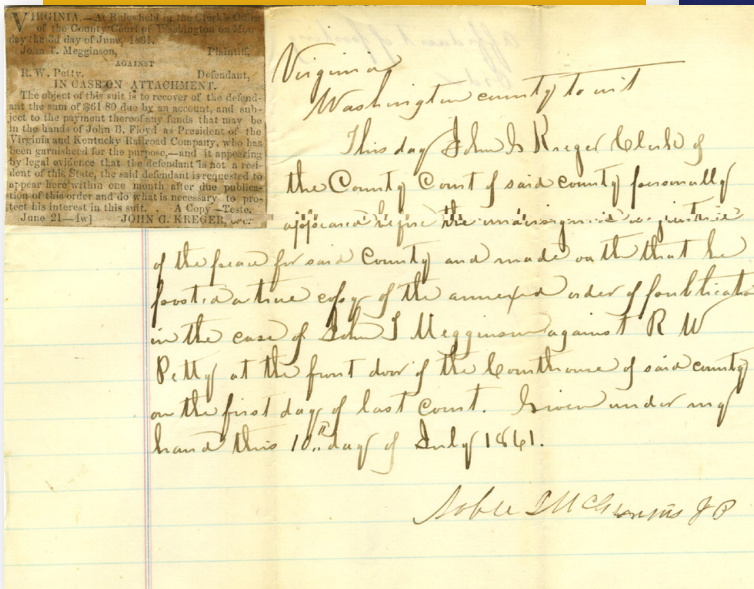 VIRGINIA.—At Rules held in the Clerk's Office
of the County Court of Washington on Mon-
day the 3d day of June, 1861.
John T. Megginson, Plaintiff,
AGAINST
R. W. Petty, Defendant,
IN CASE ON ATTACHMENT.
The object of this suit is to recover of the defend-
ant the sum of $61 89 due by an account, and sub-
ject to the payment thereof any funds that may be
in the hands of John B. Floyd as President of the
Virginia and Kentucky Railroad Company, who has
been garnisheed for the purpose,—and it appearing
by legal evidence that the defendant is not a resi-
dent of this State, the said defendant is requested to
appear here within one month after due publica-
tion of this order and do what is necessary to pro-
tect his interest in this suit. A Copy—Teste.
June 21—4w] JOHN G. KREGER,
Virginia
Washington county to wit
This day John G Kreger Clerk of
the County Court of said county personally
appeared before the undersigned a justice
of the peace for said County and made oath that he
posted a true copy of the annexed order of publication
in the case of John T Megginson against R W
Petty at the front door of the Courthouse of said county
on the first day of last court. Given under my
hand this 10th day of July 1861.
J P